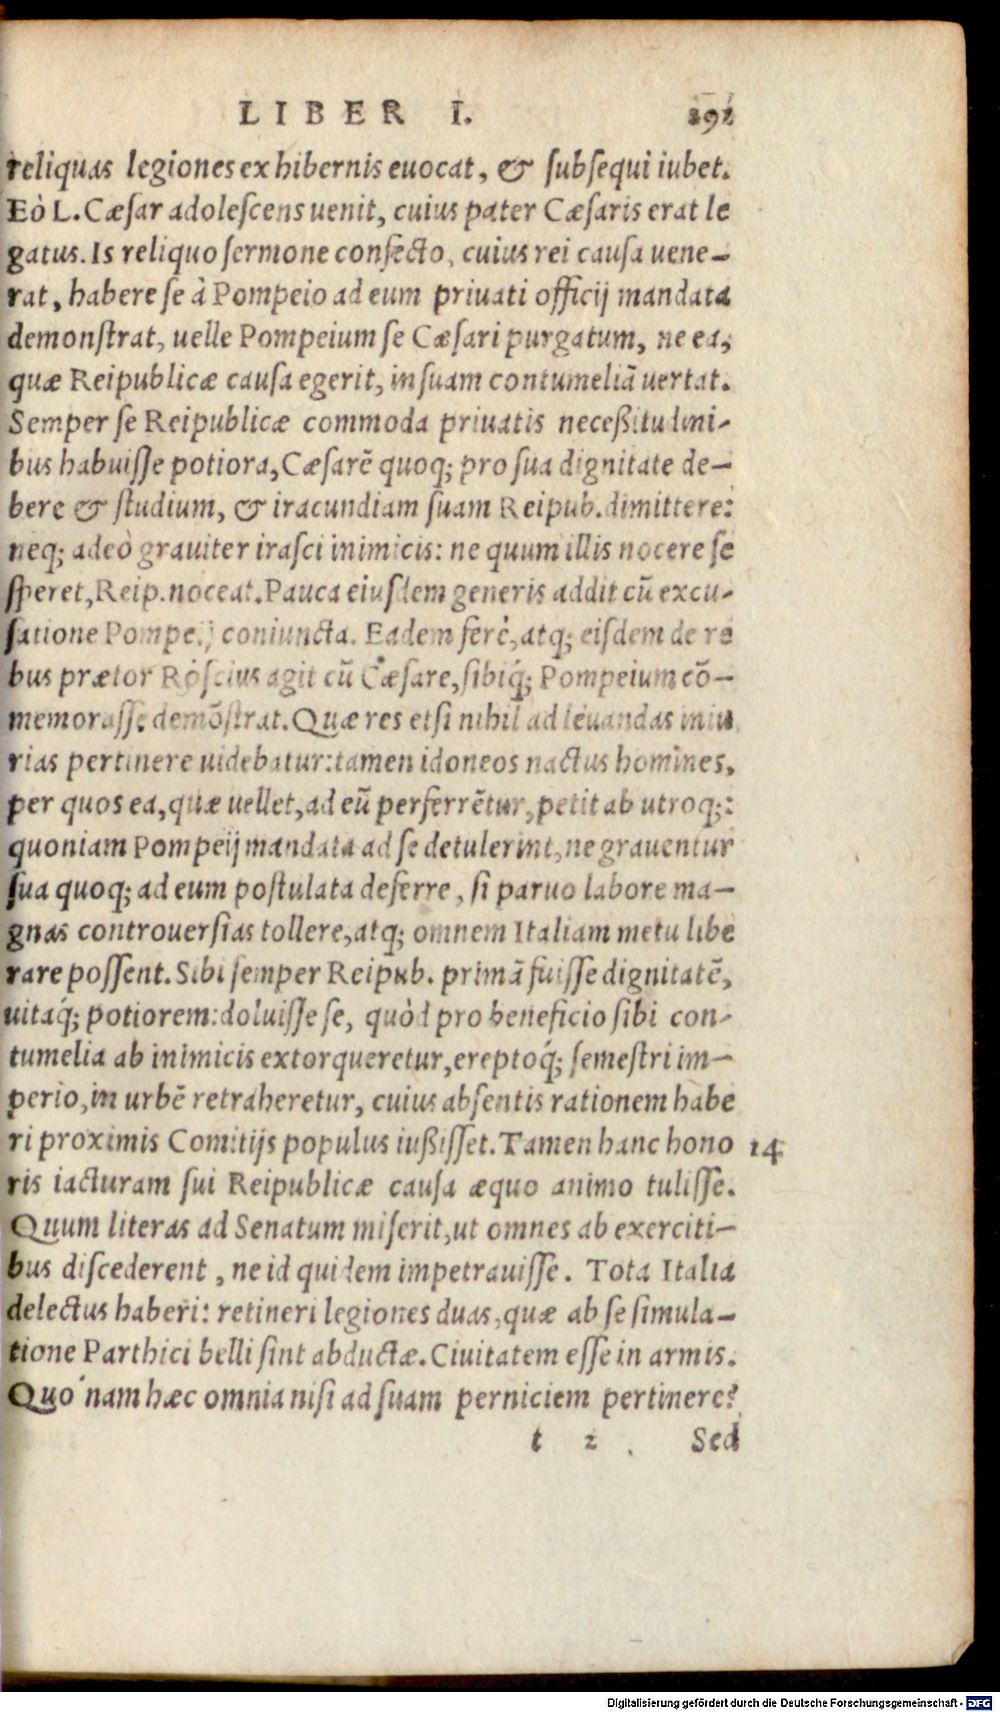 LIBER I. 292
reliquas legiones ex hibernis euocat, & subsequi iubet.
Eò L. Cæsar adolescens uenit, cuius pater Cæsaris erat le
gatus. Is reliquo sermone confecto, cuius rei causa uene-
rat, habere se à Pompeio ad eum priuati officij mandata
demonstrat, uelle Pompeium se Cæsari purgatum, ne ea,
quæ Reipublicæ causa egerit, in suam contumeliā uertat.
Semper se Reipublicæ commoda priuatis neceßitudini-
bus habuisse potiora, Cæsarē quoq; pro sua dignitate de-
bere & studium, & iracundiam suam Reipub. dimittere:
neq; adeò grauiter irasci inimicis: ne quum illis nocere se
speret, Reip. noceat. Pauca eiusdem generis addit cū excu-
satione Pompeij coniuncta. Eadem ferè, atq; eisdem de re
bus prætor Roscius agit cū Cæsare, sibiq́; Pompeium cō-
memorasse demōstrat. Quæ res etsi nihil ad leuandas iniu
rias pertinere uidebatur: tamen idoneos nactus homines,
per quos ea, quæ uellet, ad eū perferrētur, petit ab utroq;:
quoniam Pompeij mandata ad se detulerint, ne grauentur
sua quoq; ad eum postulata deferre, si paruo labore ma-
gnas controuersias tollere, atq; omnem Italiam metu libe
rare possent. Sibi semper Reipub. primā fuisse dignitatē,
uitaq́; potiorem: doluisse se, quòd pro beneficio sibi con-
tumelia ab inimicis extorqueretur, ereptoq́; semestri im-
perio, in urbē retraheretur, cuius absentis rationem habe
ri proximis Comitijs populus iußisset. Tamen hanc hono 14
ris iacturam sui Reipublicæ causa æquo animo tulisse.
Quum literas ad Senatum miserit, ut omnes ab exerciti-
bus discederent, ne id quidem impetrauisse. Tota Italia
delectus haberi: retineri legiones duas, quæ ab se simula-
tione Parthici belli sint abductæ. Ciuitatem esse in armis.
Quo nam hæc omnia nisi ad suam perniciem pertinere?
t 2 Sed
Digitalisierung gefördert durch die Deutsche Forschungsgemeinschaft - DFG